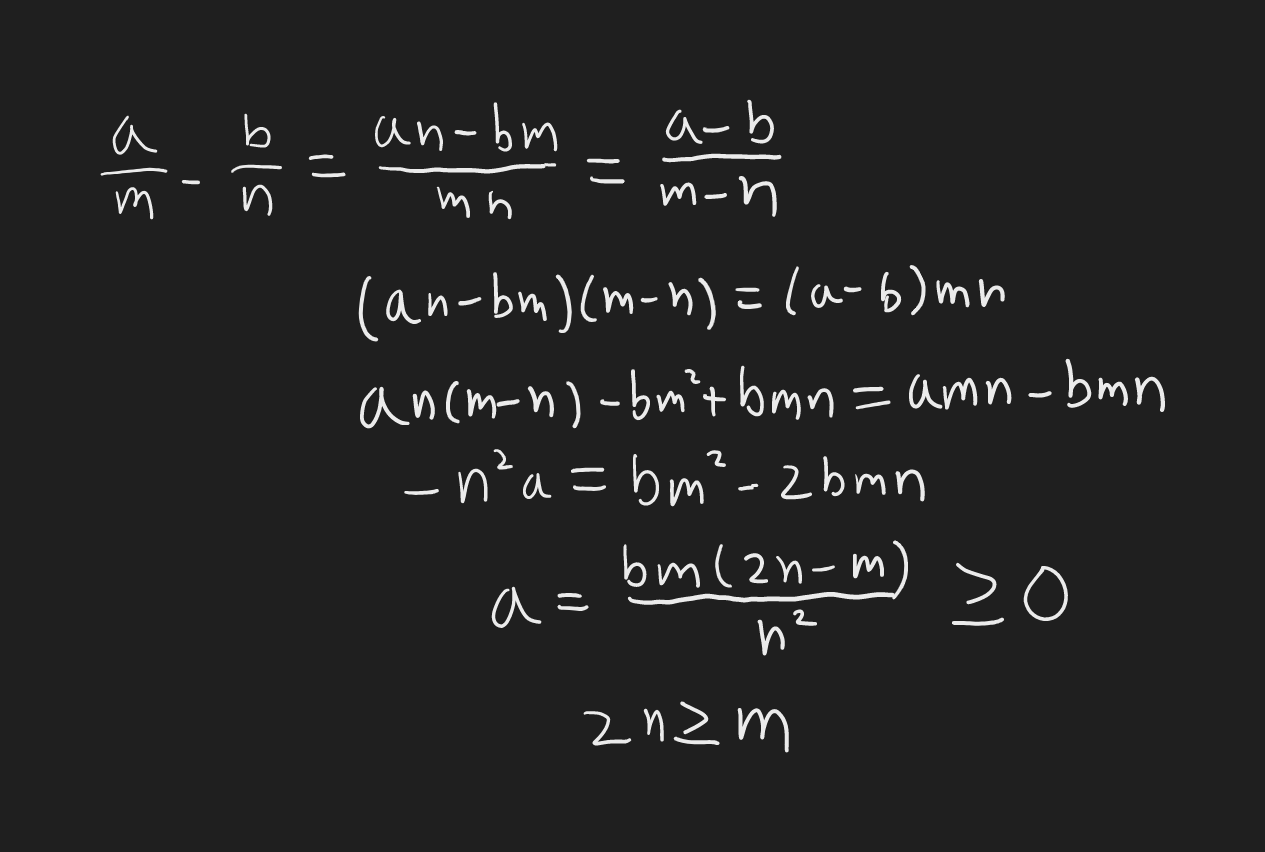 a/m - b/n = (an-bm)/mn = (a-b)/(m-n)
(an-bm)(m-n) = (a-b)mn
an(m-n) - bm² + bmn = amn - bmn
-n²a = bm² - 2bmn
a = bm(2n-m)/n² ≥ 0
2n ≥ m